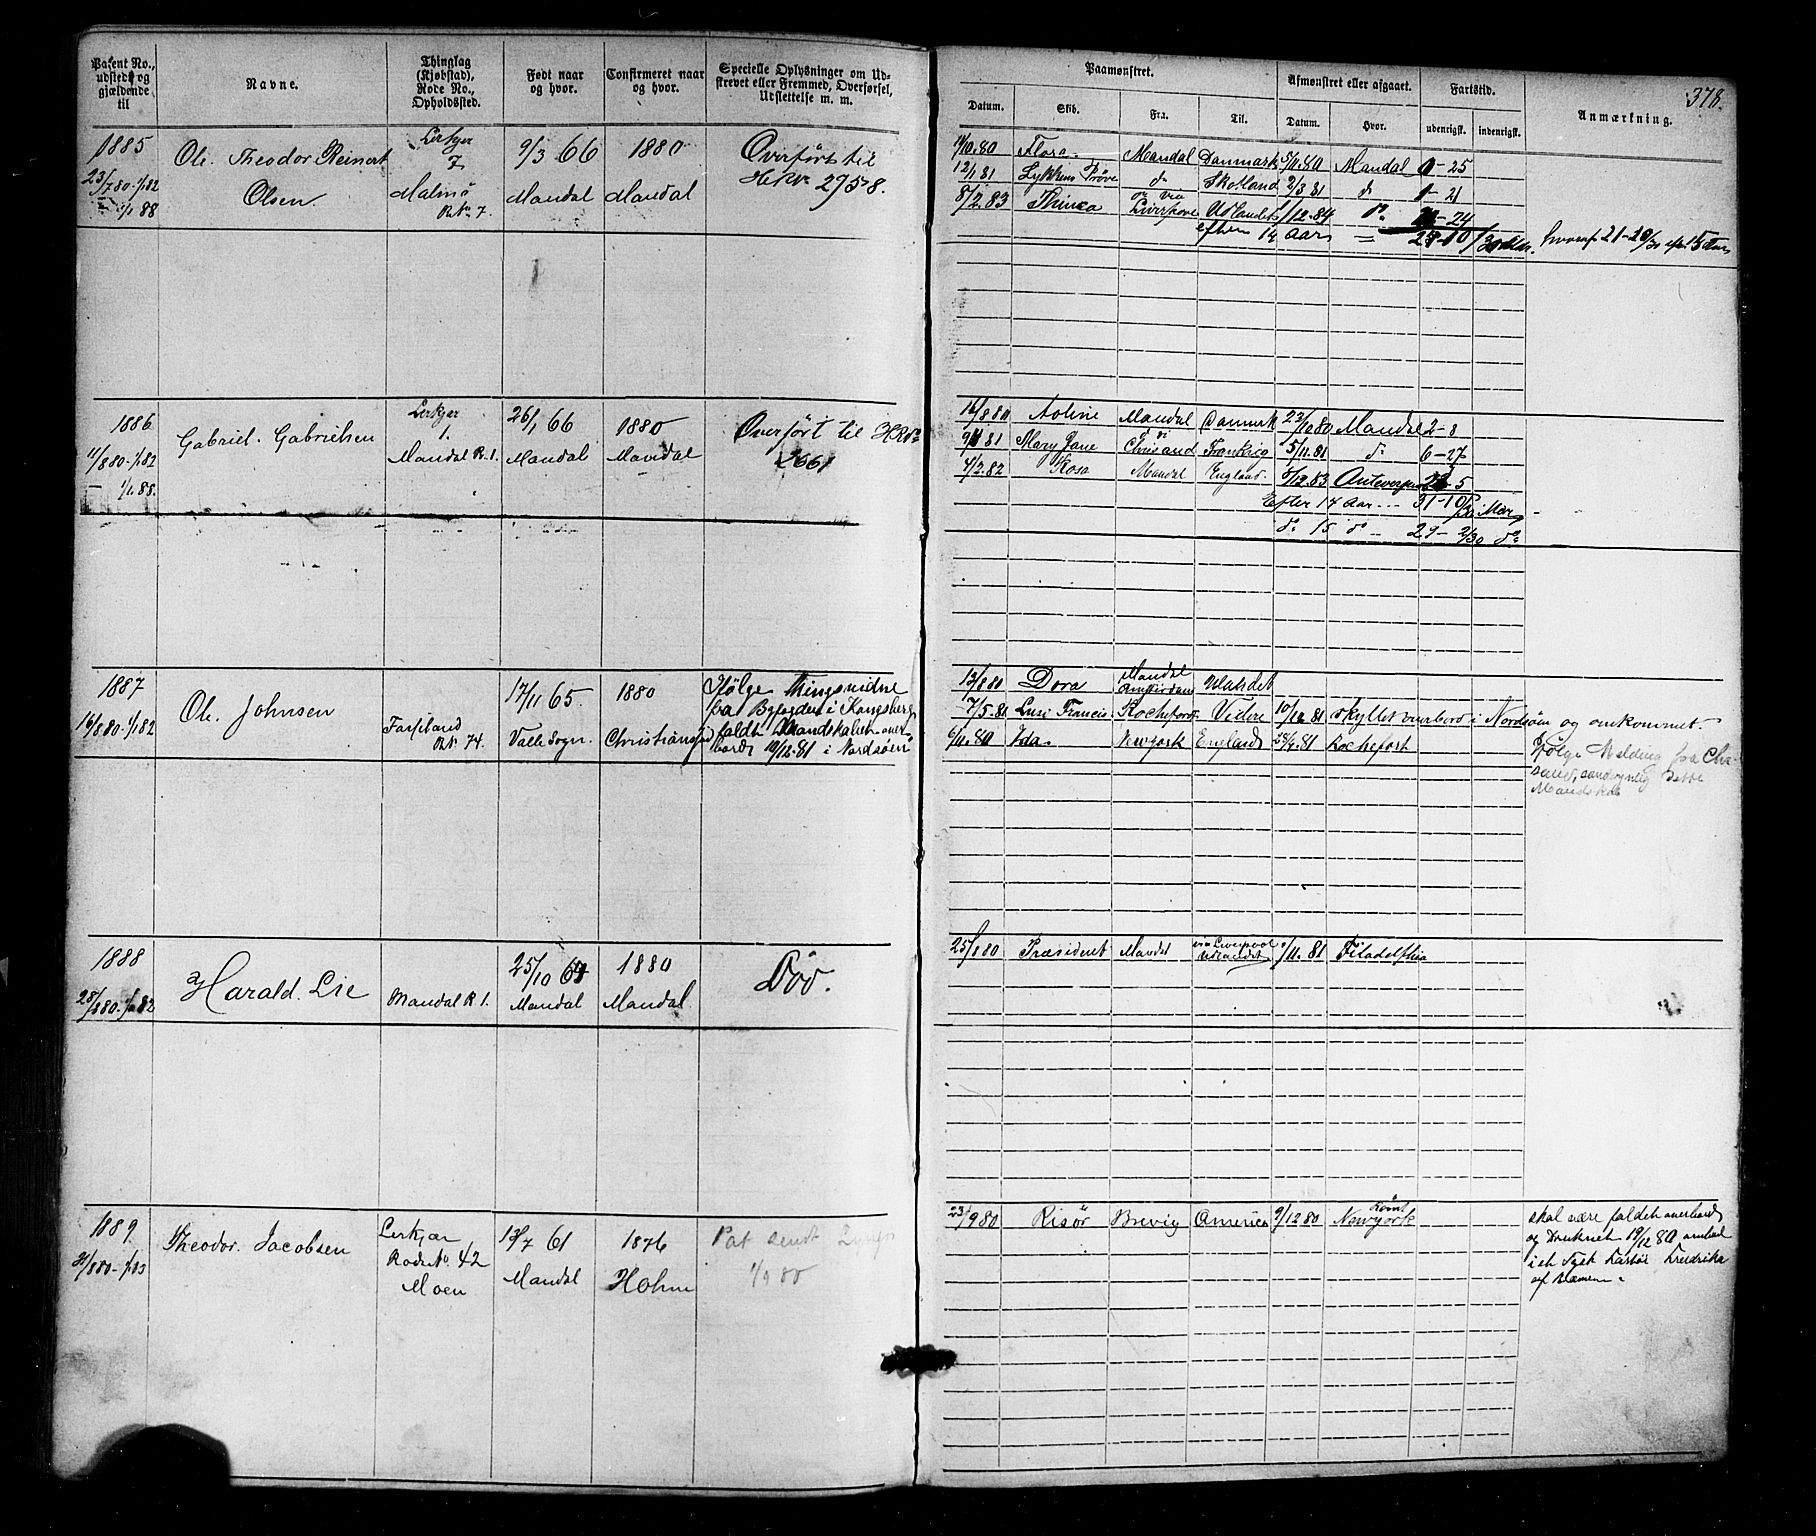 Patent No., udstedt og gjældende til
Navne.
Thinglag (Kjøbstad), Rode No., Opholdssted.
Født naar og hvor.
Confirmeret naar og hvor.
Specielle Oplysninger om Udstrevet eller Fremmed, Overførsel, Udslettelse m. m.
Paamønstret.
Afmønstret eller afgaaet.
Fartstid.
Anmærkning.
378.
Datum.
Skib.
Fra.
Til.
Datum.
Hvor.
udenrigsk.
indenrigsk.
1885
23/7 80 - 1/1 82
1/1 88
Ole Theodor Reinert
Olsen
Lerkjær
7
Malmø
R.No. 7.
9/3 66
Mandal
1880
Mandal
Overført til
HRNo 2958.
14/10.80 Flora. Mandal Danmark 5/11.80 Mandal 0-25
12/1 81 Lykkens Prøve do Skotland 2/3 81 do 1-21
8/2.83 Thinka do via Liverpool Udlandet 1/12.84 do
efter 14 Aar
1886
11/8 80 - 1/1 82
— 1/1 88.
Gabriel. Gabrielsen
Lerkjær
1.
Mandal R.1.
26/1 66
Mandal
1880
Mandal
Overført til HRNo
2661
16/8 80 Mandal Danmark 23/10 80 Mandal 2-8
81 Mary Jane Chrisand Frankrig 5/11.81 do 6-27
4/2.82 Rosa Mandal England. 8/12.83 Antwerpen
Efter 14 Aar ... 31-10
do 15 do — 29- 2/30 do
1887
16/8 80 - 1/1 82
Ole. Johnsen
R.No. 74.
17/11 65.
Valle Sogn.
1880
Christianssand
Ifølge Thingsvidne
fra Byfogden i Kongsberg
faldt Mandskabet over
bord 10/12.81 i Nordsøen
13/8 80 Dora Mandal Amsterdam Udlandet
7/5.81 Lusi Francis Rochefort Videre 10/12 81 skyllet overbord i Nordsøen og omkommet.
6/11.80 Ida. Newyork England 28/4.81 Rochefort
Ifølge Melding fra Chr-
sand, sandsynlig dette
Mandskab
1888
28/8 80 - 1/1 82
Harald. Lie
Mandal R 1.
25/10 64
Mandal
1880
Mandal
Død.
25/8 80 Præsident Mandal via Liverpool Udlandet /11.81 Filadelfia
1889
31/8 80 - 1/1 83
Theodor. Jacobsen
Lerkjær
Rode No. 42
Moen
13/7 61
Mandal
1876
Holme
Pat sendt
1/9 80
23/9 80 Risör Brevig America 9/12 80 Rømt Newyork
skal være faldet overbord
og Druknet 19/12 80, ombord
i et Tysk Fartøi Fredrika
af Bremen.